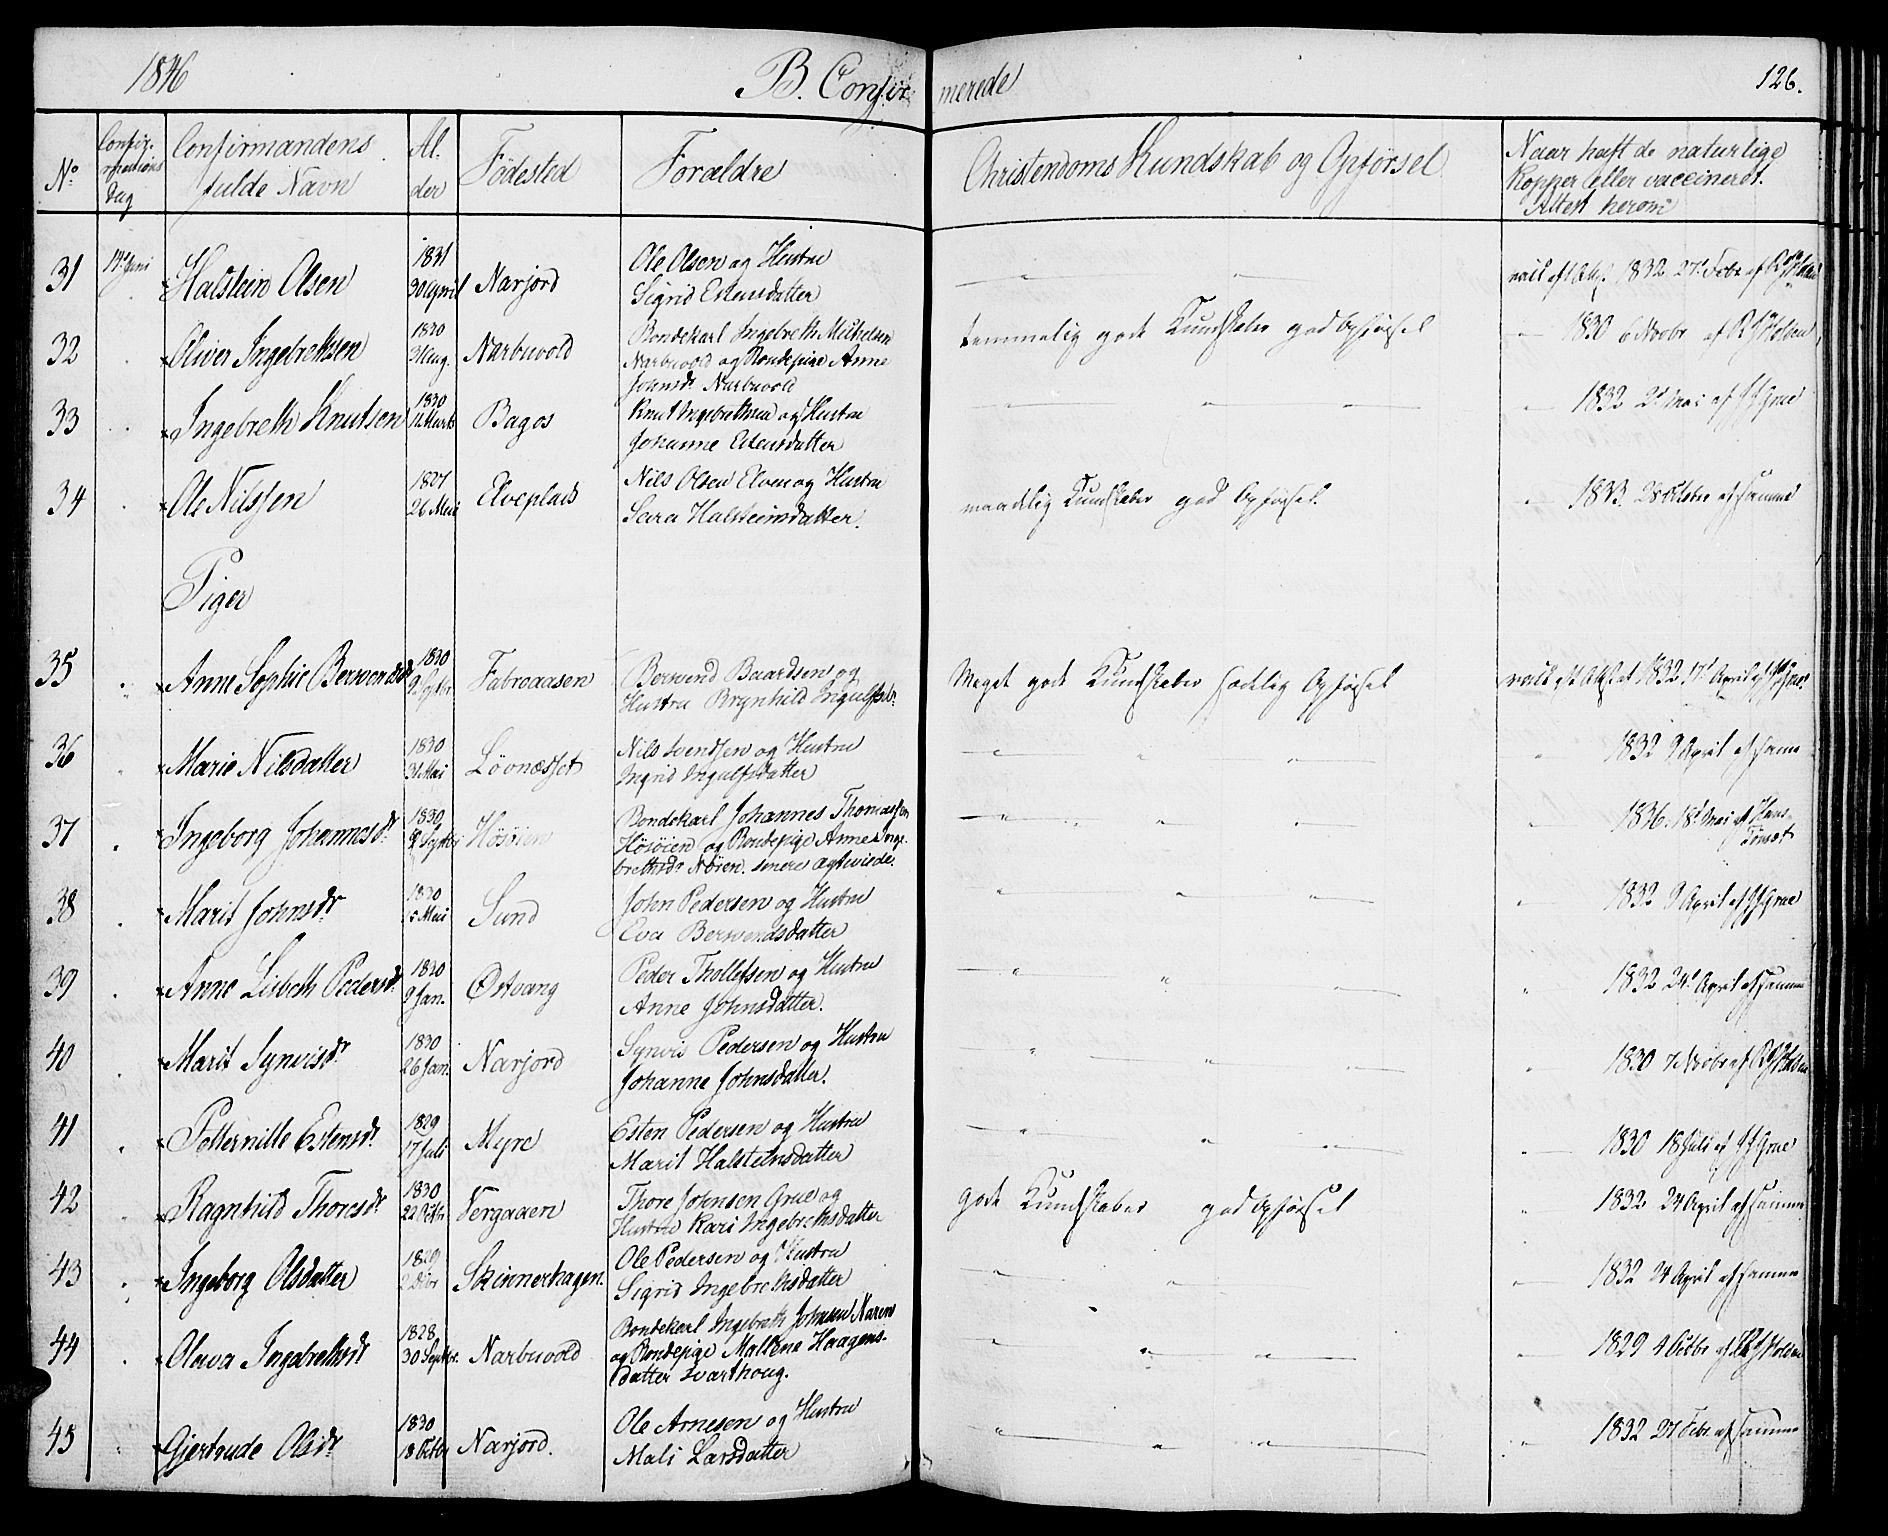 1846 B. Confir merede 126.
No Confirmations Dag Confirmandens fulde Navn Alder Födested Forældre Christendoms Kundskab og Opførsel Naar haft de naturlige Kopper eller vaccineret. Attest herom
31 14. Juni Halstein Olsen 1831 30 April Narjord Ole Olsen og Hustru
Sigrid Estensdatter 1832 27. Febr af
32 Oliver Ingebrethsen 1830 31 Aug. Narbuvold Bondekarl Ingebreth Mikelsen
Narbuvold og Bondepige Anne
Johnsdr Narbuvold temmelig gode Kundskaber god Opførsel 1830 6 Novbr af Holden
33 Ingebreth Knutsen 1830 11 Marts Bagos Knut Ingebrethsen og Hustru
Johanne Estensdatter 1832 2. Mai af Grue
34 Ole Nilssen 1827 26 Mai Elveplads Nils Olsen Elven og Hustru
Sara Halsteinsdatter. maadelig Kundskaber god Opførsel. 1833. 28 Octobr af samme
Piger
35 Anne Sophie Berwendsdr 1830 9 Septbr Fabroaasen Berwend Baardsen og
Hustru Brynhild Ingulfsdr. Meget gode Kundskaber sædelig Opførsel 1832 17. April af
36 Marie Nilsdatter 1830 31 Mai Löonæsset Nils Svendsen og Hustru
Ingrid Ingulfsdatter 1832 9 April af samme
37 Ingeborg Johannesdr. 1830 Septbr Hösöien Bondekarl Johannes Thomassen
Hösöien og Bondepige Anne Inge-
brethsdr Nören. senere ægteviede. 1836. 18. Mai af Hans
Tönset
38 Marit Johnsdr 1830 15 Mai Sund John Pedersen og Hustru
Eva Berwendsdatter 1832 9 April af Grue
39 Anne Lisbeth Pedersdr. 1830 9 Jan. Østvang Peder Thollefsen og Hustru
Anne Johnsdatter. 1832 24. April af samme
40 Marit Synvisdr. 1830 26 Jan. Narjord Synvis Pedersen og Hustru
Johanne Johnsdatter. 1830 7 Novbr af Holden
41 Petternille Estensdr. 1829 17 Juli Myre Esten Pedersen og Hustru
Marit Halsteinsdatter 1830 18 Juli af Grue
42 Ragnhild Thoresdr. 1830 22 Octbr Vergaaen Thore Johnsen Grue og
Hustru Kari Ingebrethsdatter gode Kundskaber god Opførsel 1832 24 April af samme
43 Ingeborg Olsdatter 1829 2 Skinnerhagen. Ole Pedersen og Hustru
Sigrid Ingebrethsdatter 1832 24 April af samme
44 Oleva Ingebrethsdr 1828 30 Septbr. Narbuvold Bondekarl Ingebreth Johnsen Naren
og Bondepige Malene Haagens-
datter Svarthoug. 1829 4 Octbr af Holden
45 Gjertrude Olsdr. 1830 18 Octbr Narjord. Ole Arnesen og Hustru
Mali Larsdatter 1832 27 Febr af samme